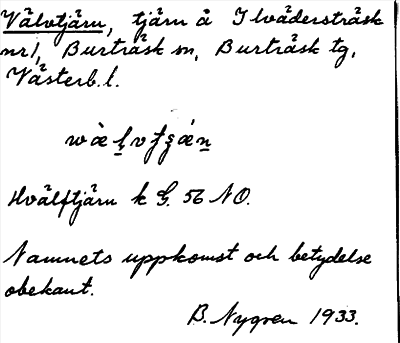 Välvtjärn, tjärn å Ilvädersträsk
nr 1, Burträsk sn, Burträsk tg,
Västerb. l.
Hvälftjärn k G. 56 NO.
Namnets uppkomst och betydelse
obekant.
B. Nygren 1933.